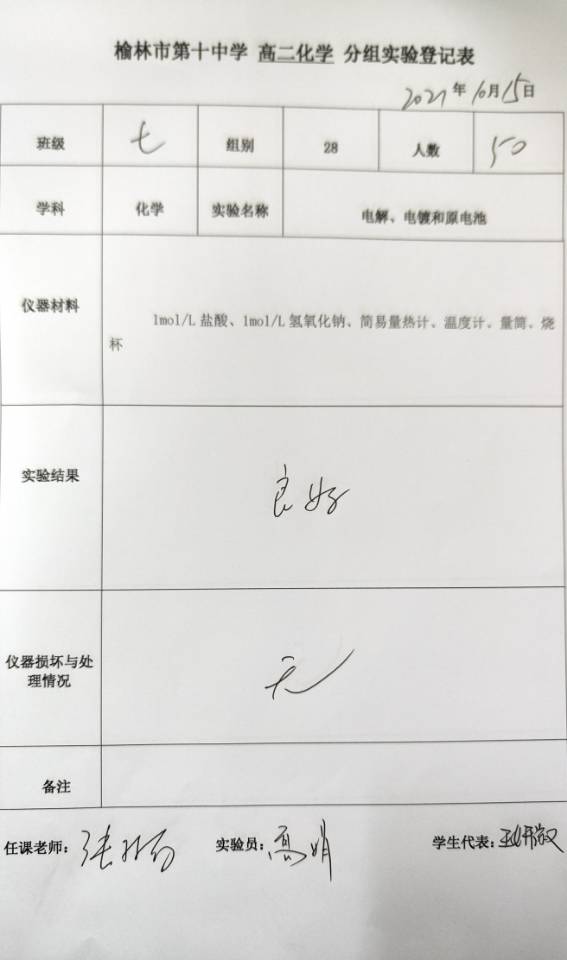 榆林市第十中学 高二化学 分组实验登记表
2021年10月15日
班级 七 组别 28 人数 50
学科 化学 实验名称 电解、电镀和原电池
仪器材料
1mol/L 盐酸、1mol/L 氢氧化钠、简易量热计、温度计、量筒、烧
杯
实验结果 良好
仪器损坏与处
理情况
无
备注
任课老师：张 实验员：高娟 学生代表：